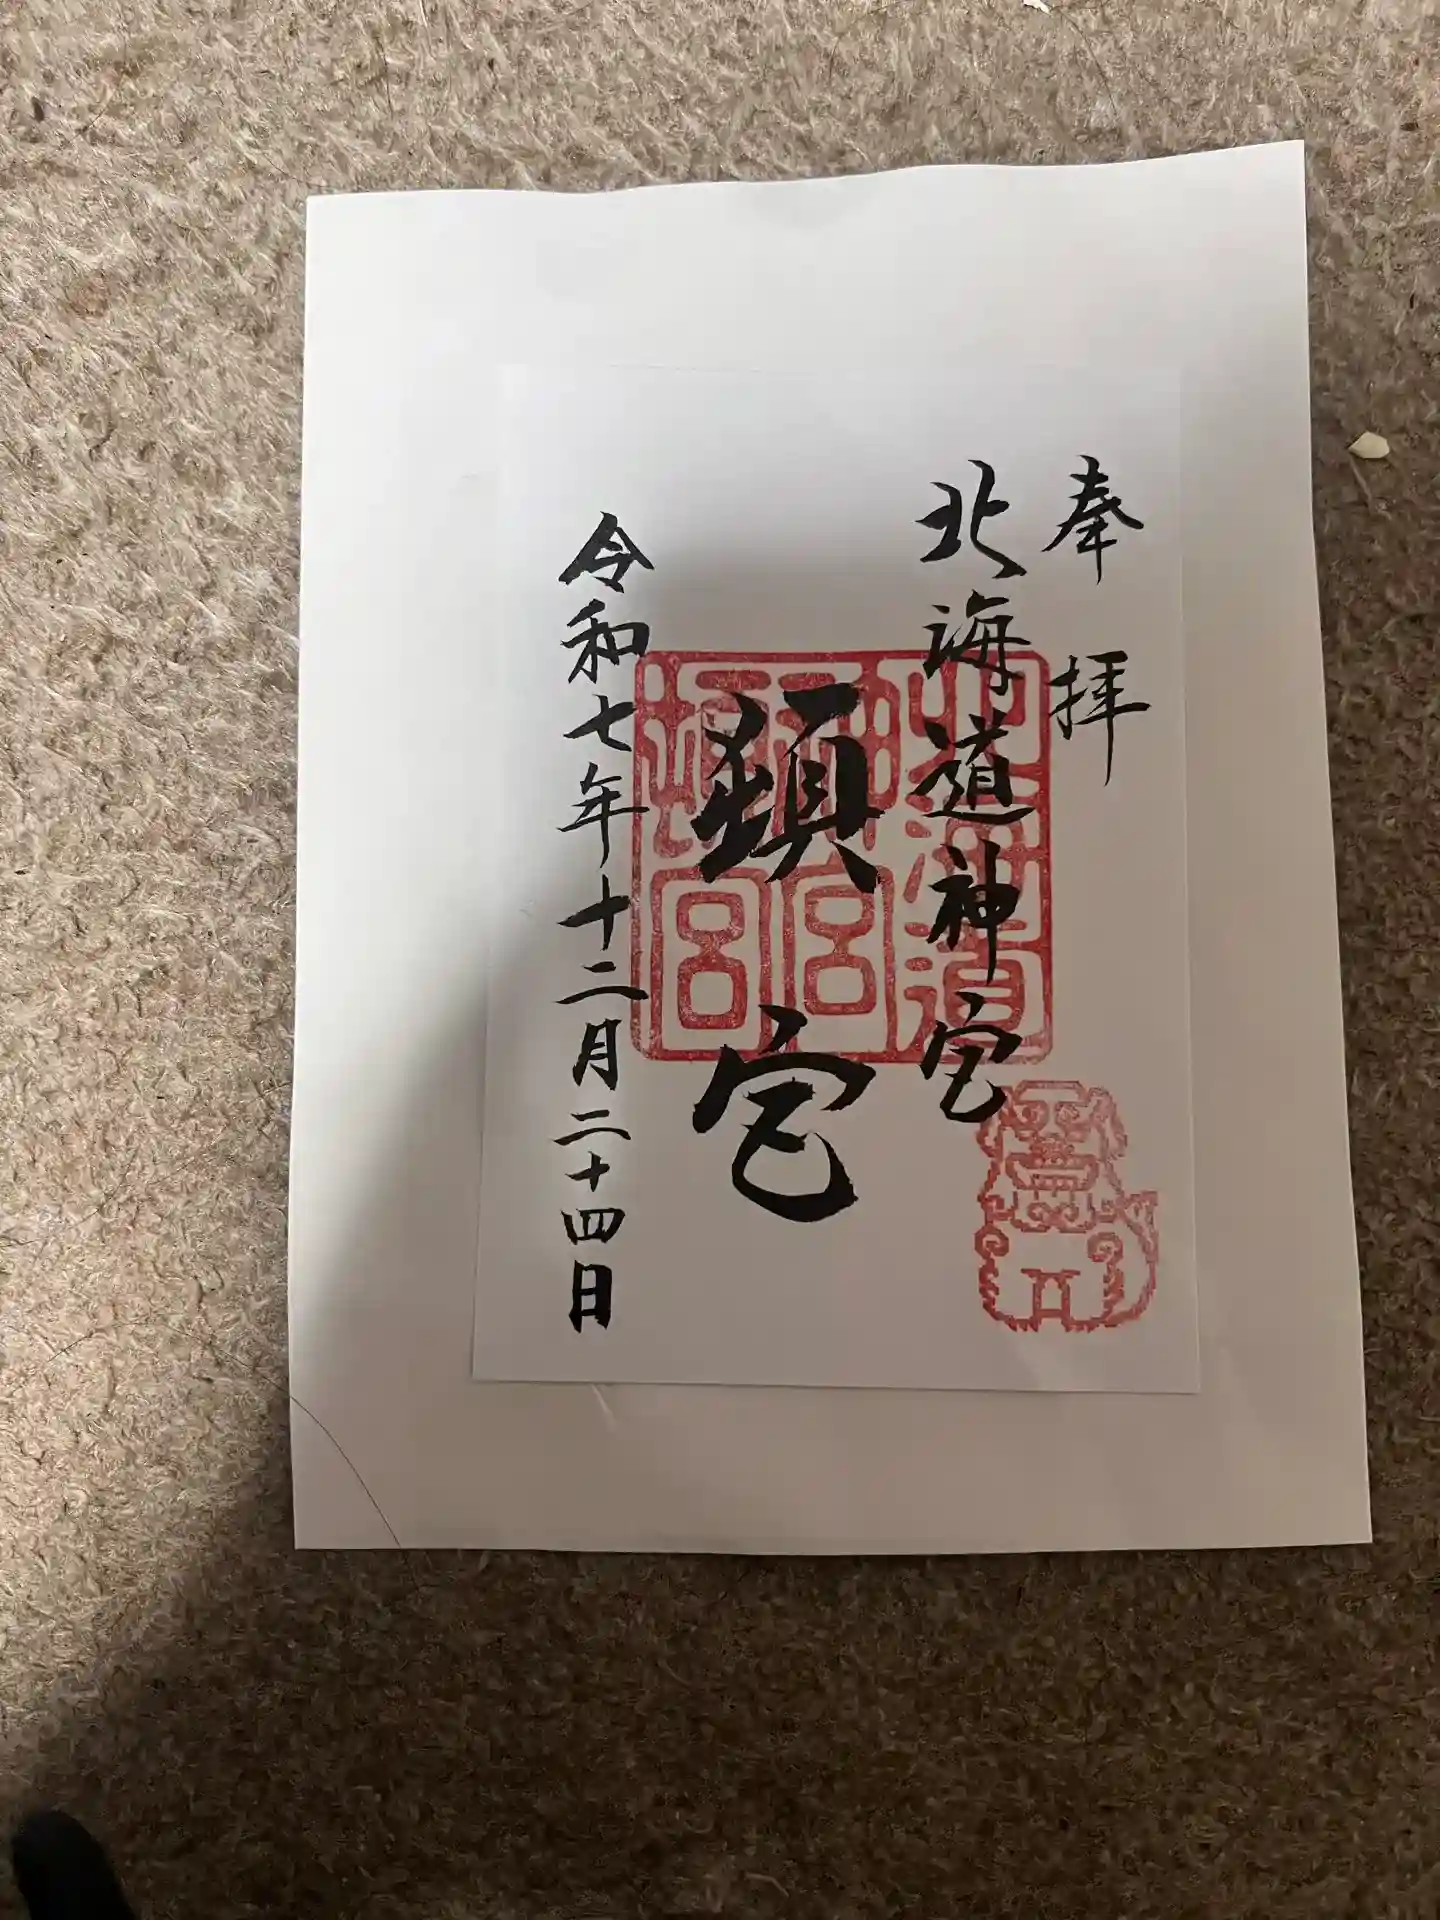 奉拝
北海道神宮
頓宮
令和七年十二月二十四日
北海道
神宮
頓宮